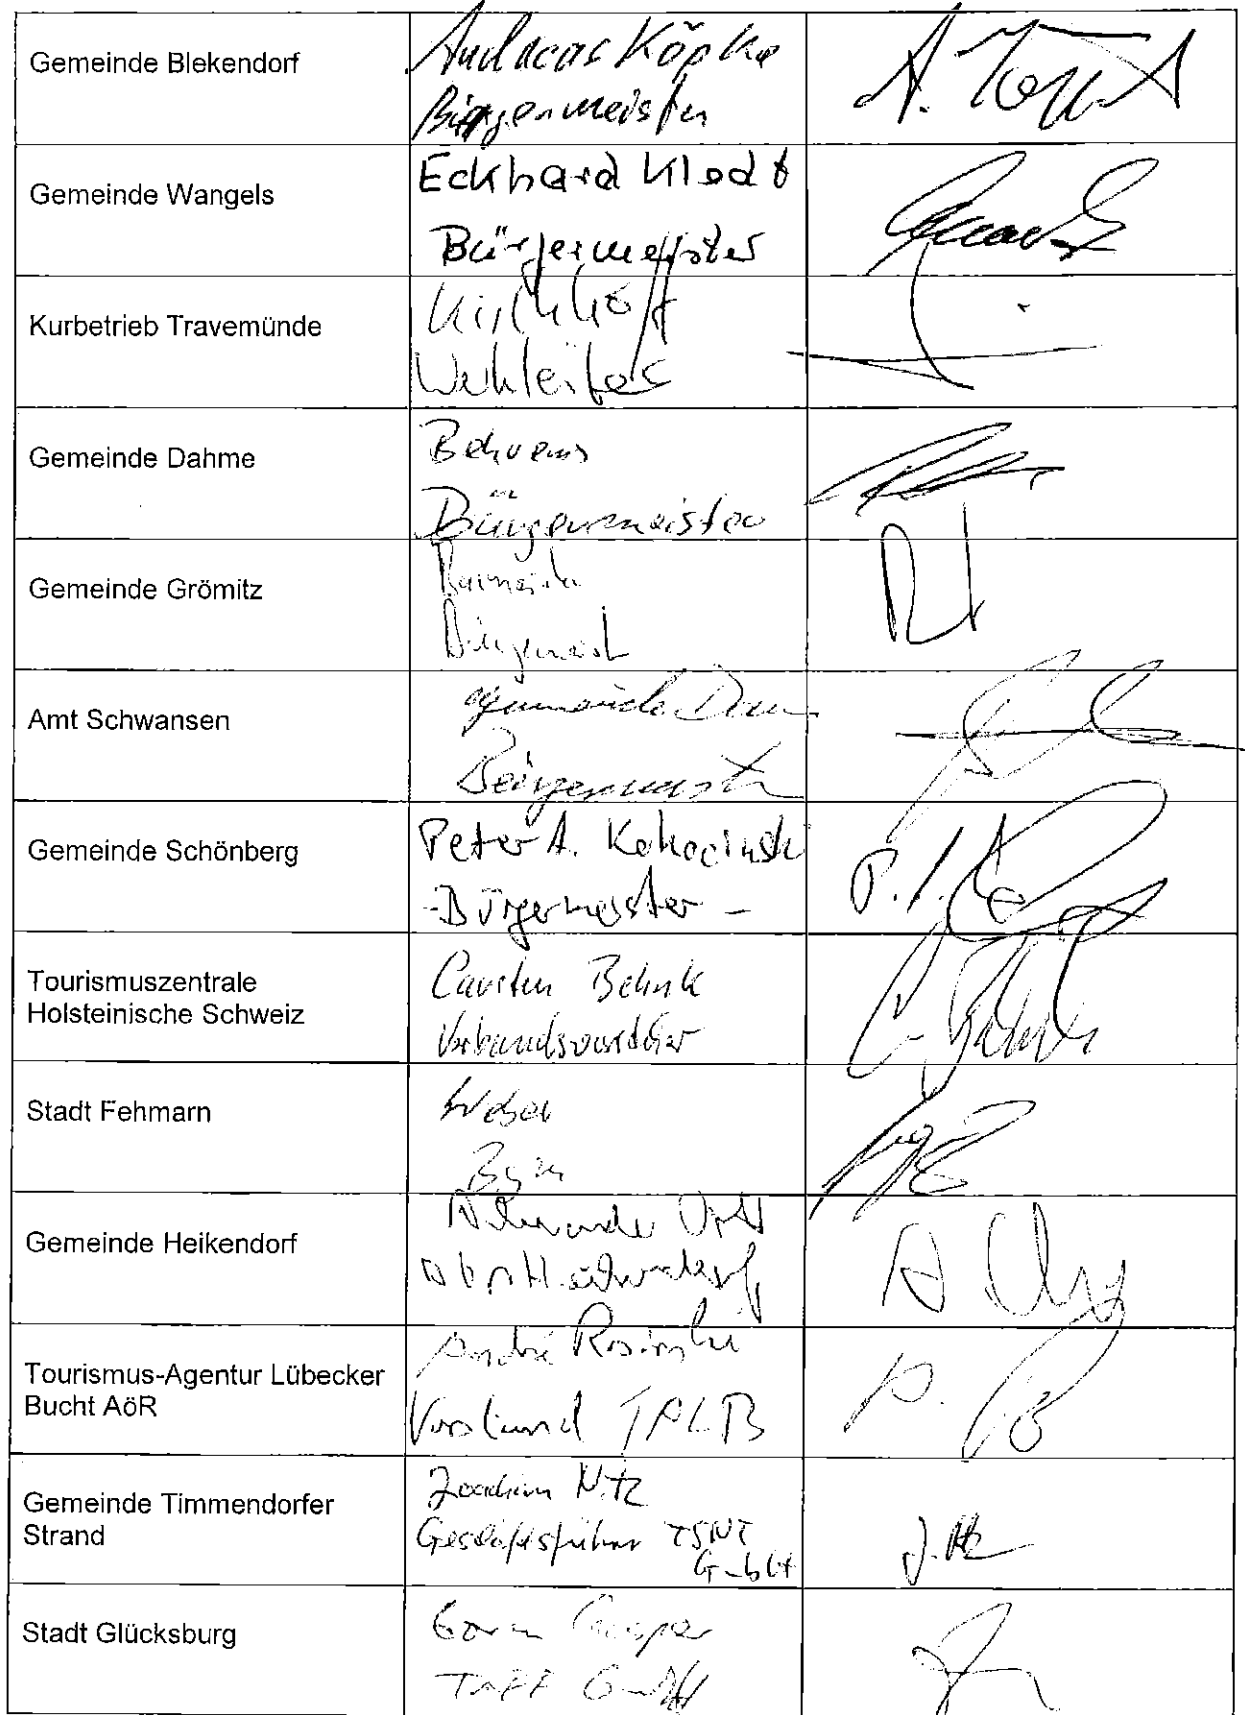 Gemeinde Blekendorf
Andreas Köpke
Bürgermeister
A.
Gemeinde Wangels
Eckhard Klodt
Bürgermeister
Kurbetrieb Travemünde
Kirchhoff
Gemeinde Dahme
Behrens
Bürgermeister
Gemeinde Grömitz
Amt Schwansen
Gemeinde
Bürgermeister
Gemeinde Schönberg
Peter A. Kokocinski
-Bürgermeister-
P.
Tourismuszentrale
Holsteinische Schweiz
Carsten Behnk
Verbandsvorsteher
C. Behnk
Stadt Fehmarn
Weber
Bgm
Gemeinde Heikendorf
Alexander Orth
A
Tourismus-Agentur Lübecker
Bucht AöR
André Rosinski
Vorstand TALB
A.
Gemeinde Timmendorfer
Strand
Joachim Nitz
Geschäftsführer TSNT
GmbH
J. Nitz
Stadt Glücksburg
Gorm Casper
TAFF GmbH